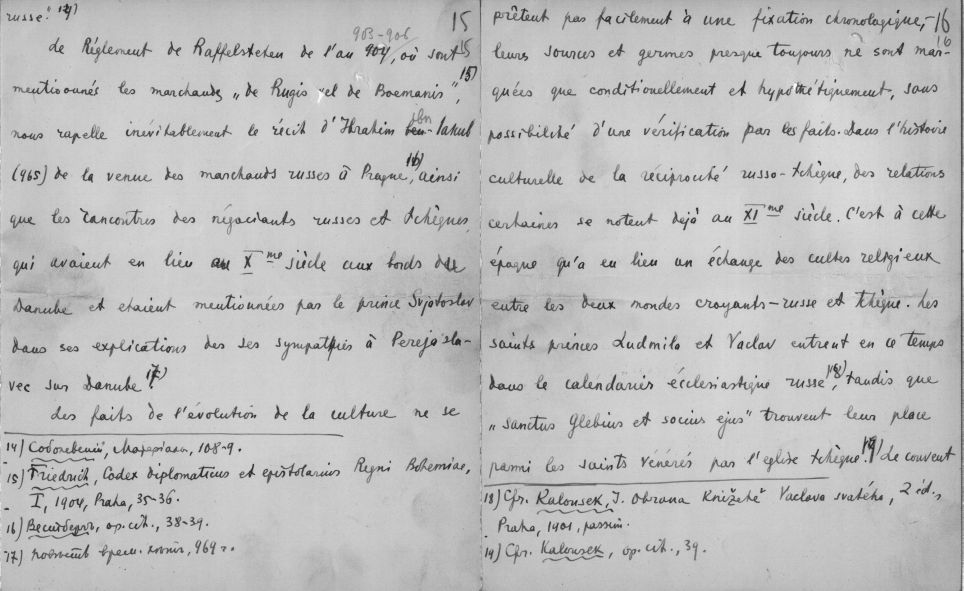 russe." 14)
15
903-906
Le Réglement de Raffelsteten de l'an 904, où sont
15
mentiounnés les marchands „de Rugis vel de Boemanis", 15)
nous rapelle inévitablement le récit d'Ibrahim ibn-Iakub
(965) de la venue des marchands russes à Prague, 16) ainsi
que les rancontres des négociants russes et tchèques,
qui avaient en lieu au X me siècle aux bords de
Danube et etaient mentiounnées pas le prince Svjatoslav
dans ses explications des ses sympathies à Perejasla-
vec sur Danube. 17)
Les faits de l'évolution de la culture ne se
14) Соболевскій, Матеріалы, 108-9.
15) Friedrich, Codex diplomaticus et epistolarius Regni Bohemiae,
I, 1904, Praha, 35-36.
16) Вестбергъ, op. cit., 38-39.
17) Повѣсть врем. лѣтъ, 969 г.
prêtent pas facilement à une fixation chronologique,-
16
leurs sources et germes presque toujours ne sont mar-
16
quées que conditionellement et hypothétiquement, sans
possibilité d'une vérification par les faits. Dans l'histoire
culturelle de la réciprocité russo-tchèque, des relations
certaines se notent dejà au XI me siècle. C'est à cette
épaque qu'a eu lieu un échange des cultes religieux
entre les deux mondes croyants-russe et tchèque. Les
saints princes Ludmila et Vaclav entrent en ce temps
dans le calendariés écclesiastique russe, 18) tandis que
„sanctus Glebius et socius ejus" trouvent leur place
parmi les saints vénérés pas l'eglise tchèque. 19) Le couvent
18) Cfr. Kalousek, J. Obrana Knížete Vaclava svatého, 2 éd.,
Praha, 1901, passim.
19) Cfr. Kalousek, op. cit., 39.